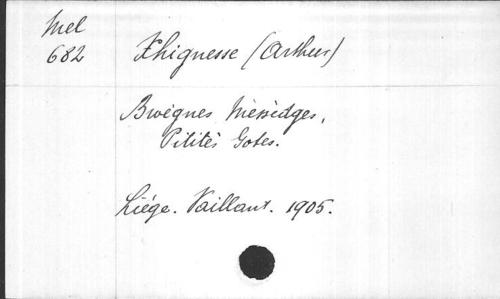 Mel
682
Xhignesse (Arthur)
Bwègnes Mèssèdges,
Pititès Gotes.
Liége. Vaillant. 1905.